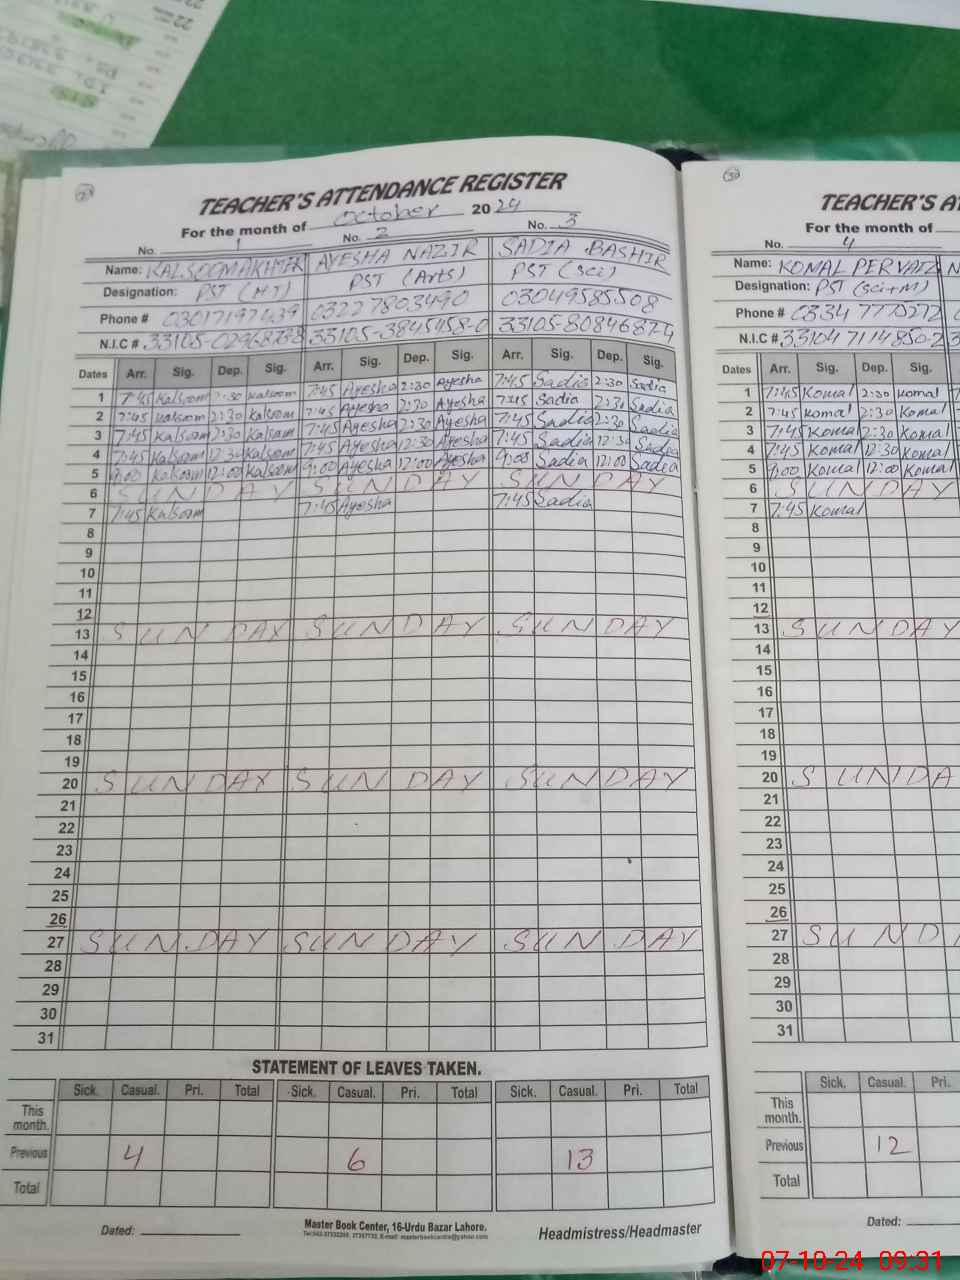 TEACHER'S ATTENDANCE REGISTER
For the month of October 2024
No. 1 No. 2 No. 3
Name: KALSOOM AKHTER AYESHA NAZIR SADIA BASHIR
Designation: PST (HT) PST (Arts) PST (sci)
Phone # 03017197439 03227803490 03049585508
N.I.C # 33105-3845458-0 33105-8084687-4
Dates Arr. Sig. Dep. Sig. Arr. Sig. Dep. Sig. Arr. Sig. Dep. Sig.
1 7:45 Kalsoom 2:30 Kalsoom 7:45 Ayesha 2:30 Ayesha 7:45 Sadia 2:30 Sadia
2 7:45 Kalsoom 2:30 Kalsoom 7:45 Ayesha 2:30 Ayesha 7:45 Sadia 2:30 Sadia
3 7:45 Kalsoom 2:30 Kalsoom 7:45 Ayesha 2:30 Ayesha 7:45 Sadia 2:30 Sadia
4 7:45 Kalsoom 12:30 Kalsoom 7:45 Ayesha 12:30 Ayesha 7:45 Sadia 12:30 Sadia
5 9:00 Kalsoom 12:00 Kalsoom 9:00 Ayesha 12:00 Ayesha 9:00 Sadia 12:00 Sadia
6 SUNDAY SUNDAY SUNDAY
7 7:45 Kalsoom 7:45 Ayesha 7:45 Sadia
8
9
10
11
12
13 SUNDAY SUNDAY SUNDAY
14
15
16
17
18
19
20 SUNDAY SUNDAY SUNDAY
21
22
23
24
25
26
27 SUNDAY SUNDAY SUNDAY
28
29
30
31
STATEMENT OF LEAVES TAKEN.
Sick. Casual. Pri. Total Sick. Casual. Pri. Total Sick. Casual. Pri. Total
This month.
Previous 4 6 13
Total
Dated: Master Book Center, 16-Urdu Bazar Lahore. Headmistress/Headmaster
30
TEACHER'S AT
For the month of
No. 4
Name: KOMAL PERVAIZ
Designation: PST (sci+M)
Phone # 0334 7770272
N.I.C # 33104 7114850-2
Dates Arr. Sig. Dep. Sig.
1 7:45 Komal 2:30 Komal
2 7:45 Komal 2:30 Komal
3 7:45 Komal 2:30 Komal
4 7:45 Komal 12:30 Komal
5 9:00 Komal 12:00 Komal
6 SUNDAY
7 7:45 Komal
8
9
10
11
12
13 SUNDAY
14
15
16
17
18
19
20 SUNDA
21
22
23
24
25
26
27 SUND
28
29
30
31
Sick. Casual. Pri.
This month.
Previous 12
Total
Dated:
07-10-24 09:31